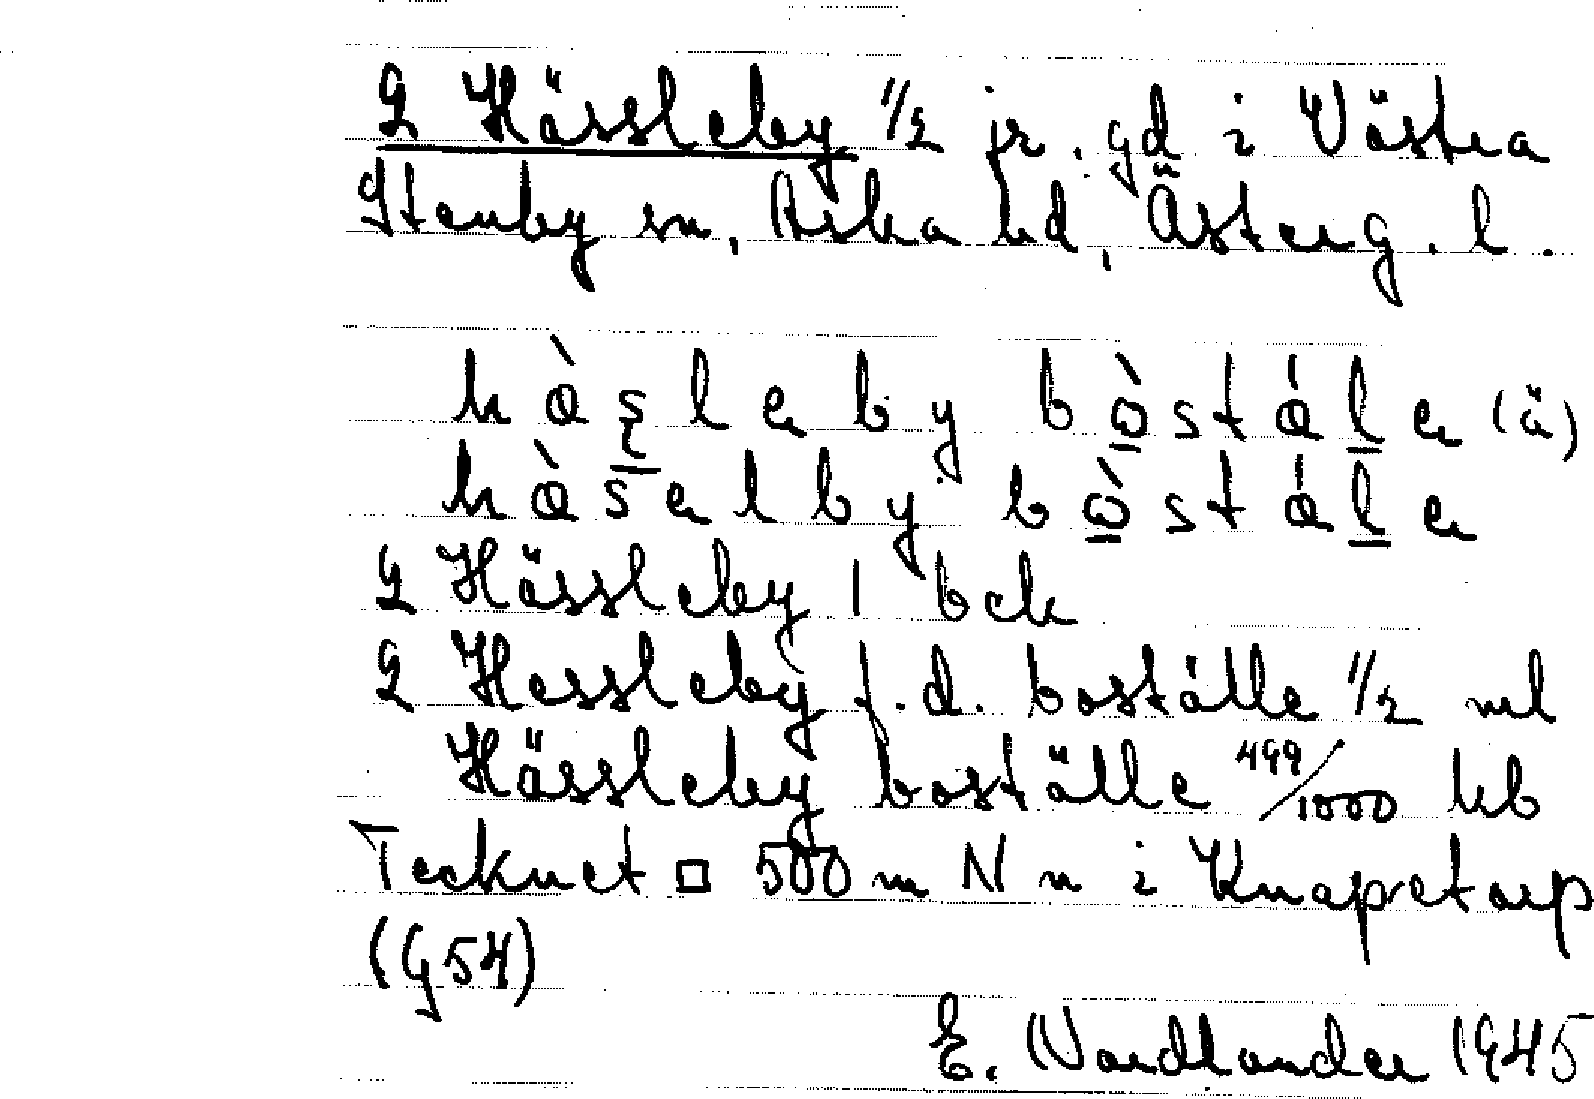 2 Hässleby 1/2 jr. gd i Västra
Stenby sn, Aska hd, Österg. l.
hàsleby bòstále (ä)
hàselby bòstále
2 Hässleby 1 bek
2 Hessleby f.d. boställe 1/2 ml
Hässleby boställe 499/1000 kb
Tecknet □ 500 m N n i Knapetorp
(G54)
E. Nordlander 1945